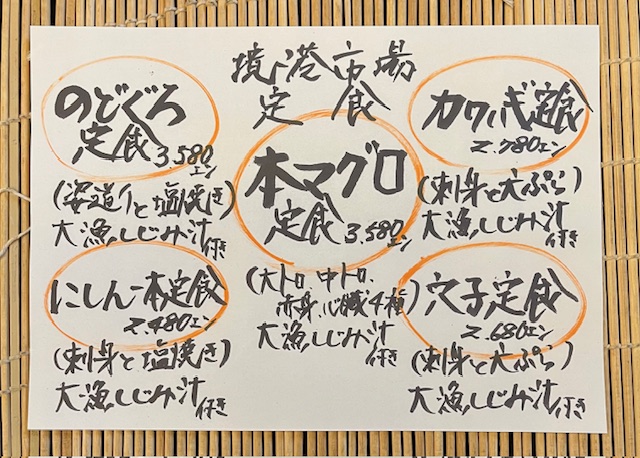 境港市場
定食
のどぐろ
定食 3.580エン
(姿造りと塩焼き)
大漁しじみ汁付き
本マグロ
定食 3.580エン
(大トロ、中トロ、
赤身、心臓4種)
大漁しじみ汁付き
カワハギ定食
2.780エン
(刺身と天ぷら)
大漁しじみ汁付き
にしん一本定食
2.480エン
(刺身と塩焼き)
大漁しじみ汁付き
穴子定食
2.680エン
(刺身と天ぷら)
大漁しじみ汁付き